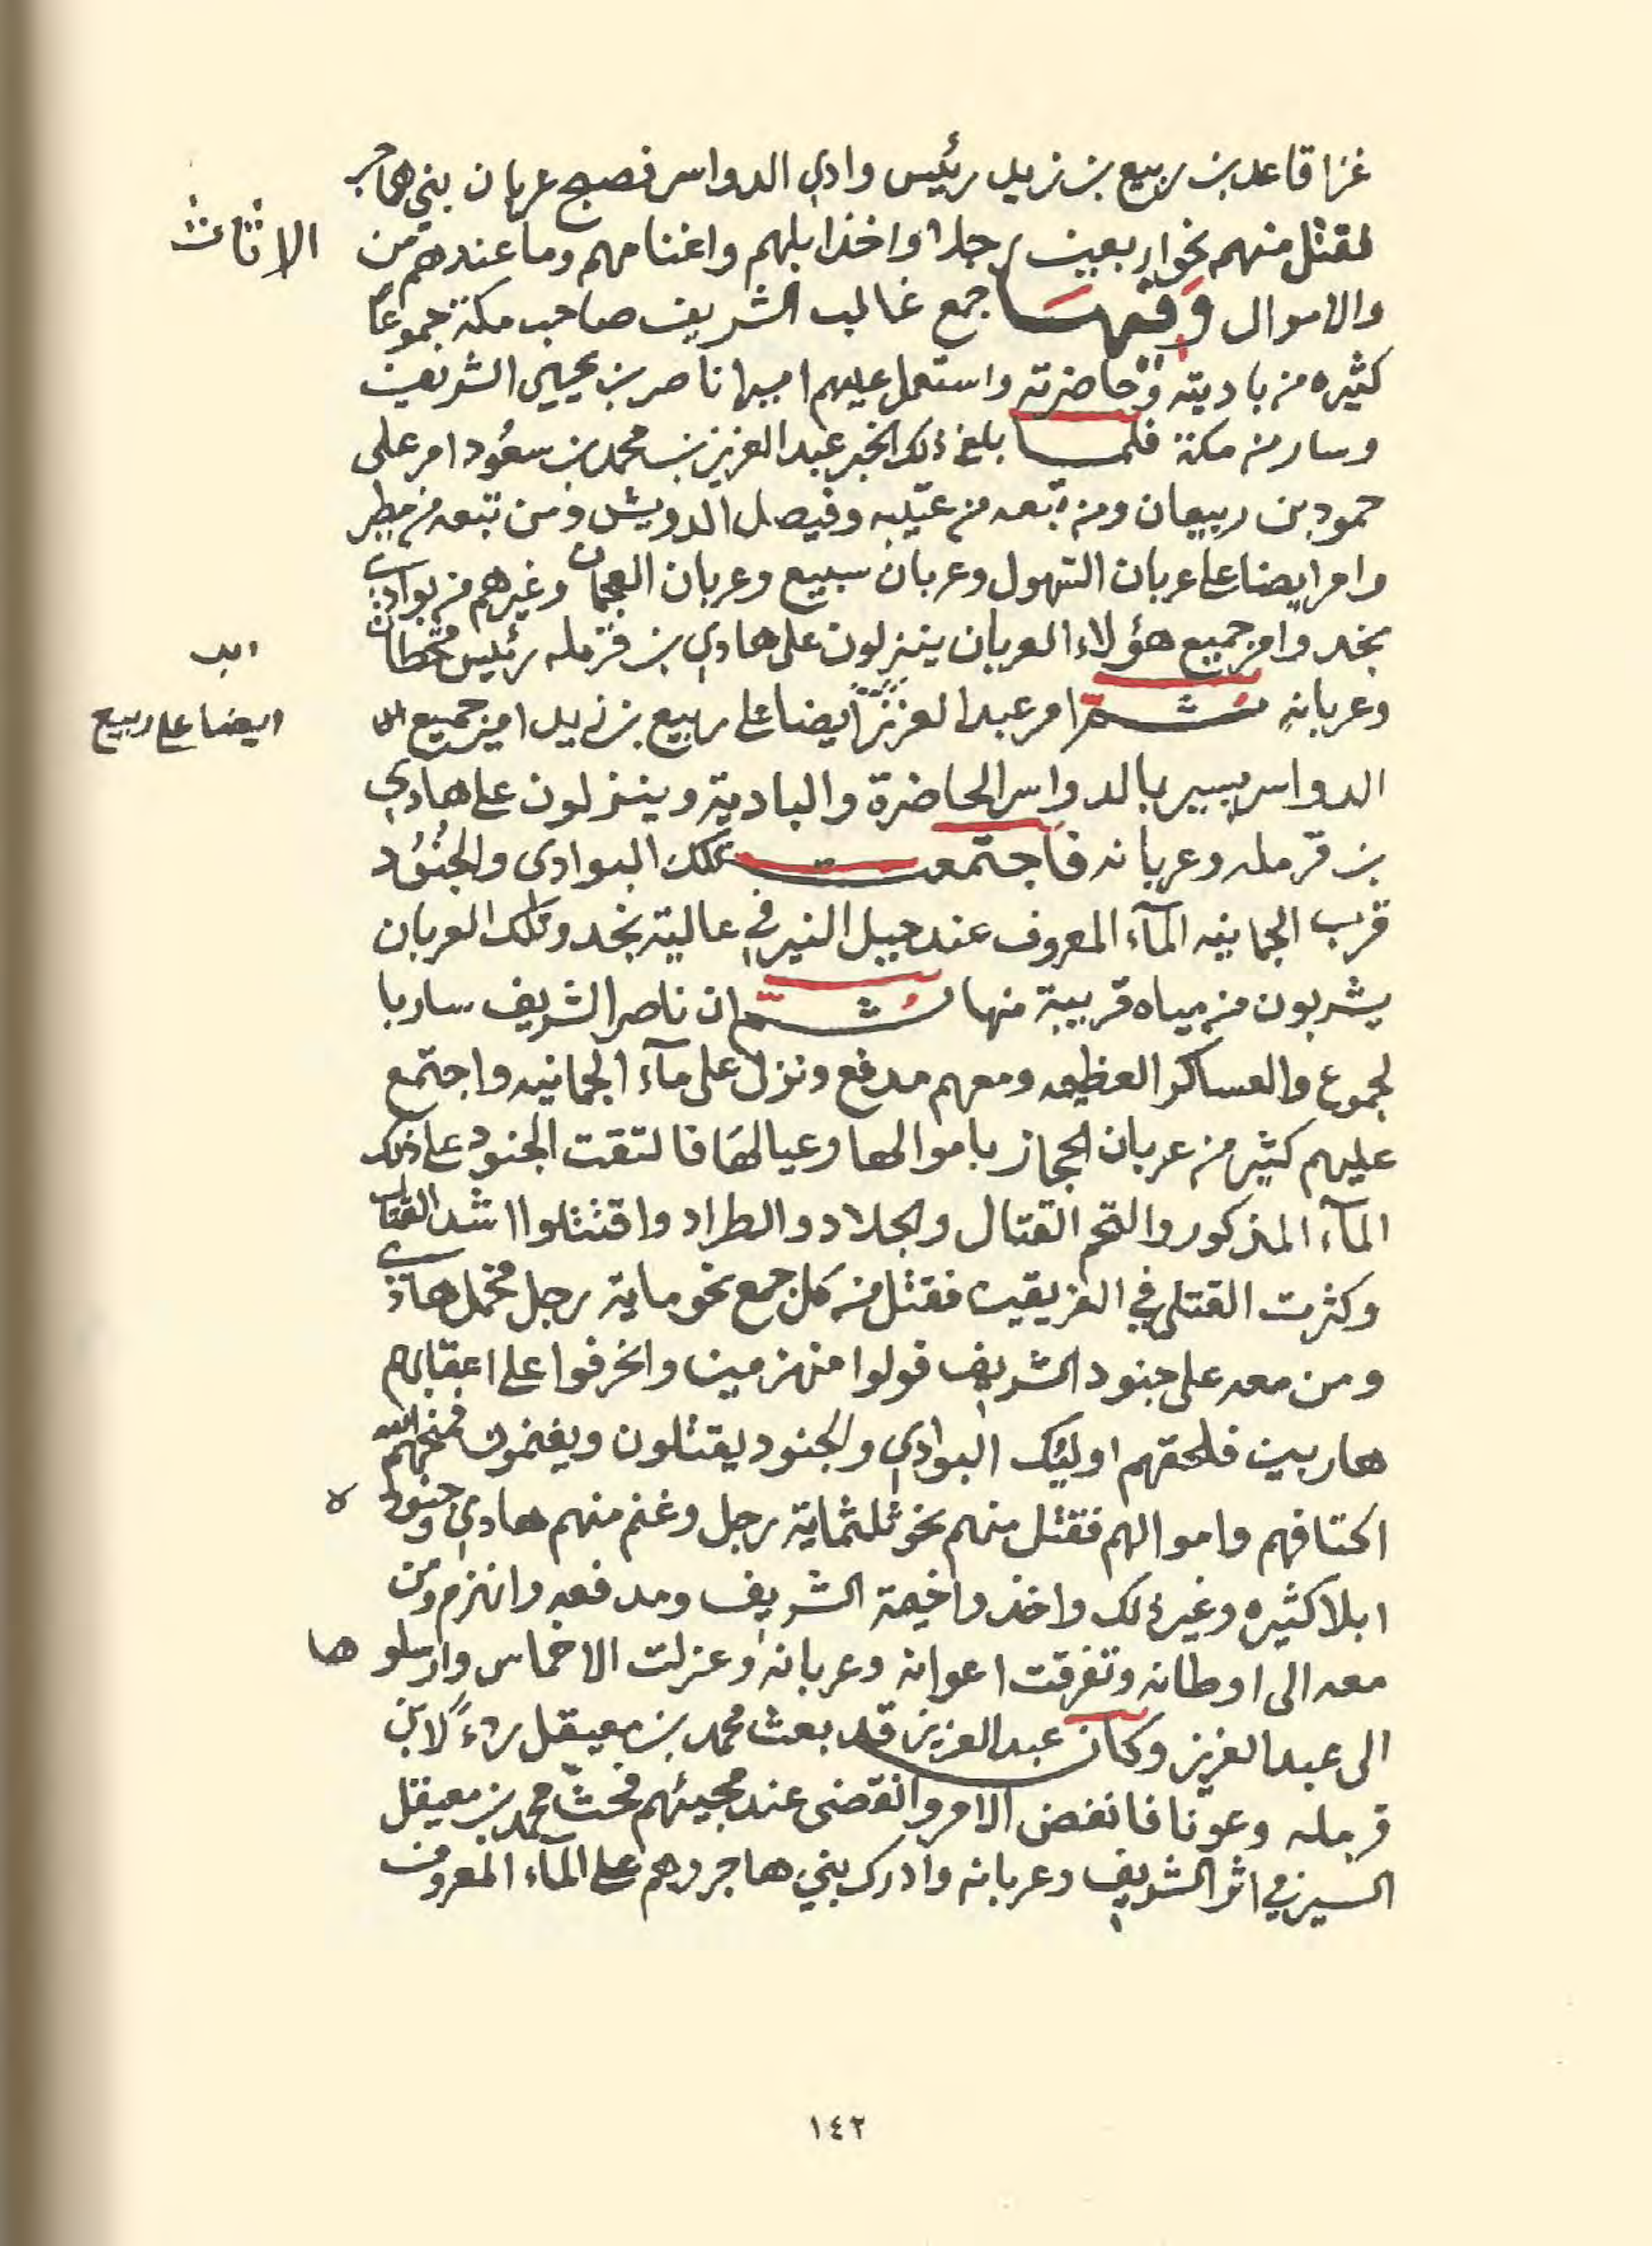 غزا قاعد بن ربيع بن زيد رئيس وادي الدواسر فصبح عربان بني هاجر
فقتل منهم نحو اربعين رجلا واخذ ابلهم واغنامهم وما عندهم من الاثاث
والاموال وفيها جمع غالب الشريف صاحب مكة جموعاً
كثيره من باديته وحاضرته واستعمل عليهم اميرا ناصر بن يحيى الشريف
وسار من مكة فلما بلغ ذلك الخبر عبد العزيز بن محمد بن سعُود امر على
حمود بن ربيعان ومن تبعه من عتيبه وفيصل الدويش ومن تبعه من مطير
وامر ايضا على عربان السهول وعربان سبيع وعربان العجمان وغيرهم من بوادي
نجد وامر جميع هؤلاء العربان ينزلون على هادي بن قرمله رئيس قحطان
وعربانه ثم امر عبد العزيز ايضا على ربيع بن زيد امير جميع
ايضا على ربيع
الدواسر يسير بالدواسر الحاضرة والبادية وينزلون على هادي
بن قرمله وعربانه فاجتمعت تلك البوادي والجنُود
قرب الجمانيه المآء المعروف عند جبل النير في عالية نجد وتلك العربان
يشربون من مياه قريبة منها ثم ان ناصر الشريف سار با
لجموع والعساكر العظيمه ومعهم مدفع ونزل على مآء الجمانيه واجتمع
عليهم كثير من عربان الحجاز باموالها وعيالها فالتقت الجنود على ذلك
المآء المذكور والتحم القتال والجلاد والطراد واقتتلوا اشد القتال
وكثرت القتلى في الفريقين فقتل من كل جمع نحو ماية رجل فحمل هادي
ومن معه على جنود الشريف فولوا منهزمين وانحرفوا على اعقابهم
هاربين فلحقهم اوليك البوادي والجنود يقتلون ويغنمون فمنحهم الله
اكتافهم واموالهم فقتل منهم نحو ثلثماية رجل وغنم منهم هادي وجنوده
ابلا كثيره وغير ذلك واخذوا خيمة الشريف ومدفعه وانهزم ومن
معه الى اوطانه وتفرقت اعوانه وعربانه وعزلت الاخماس وارسلو ها
الى عبد العزيز وكان عبد العزيز قد بعث محمد بن معيقل ردءً لابن
قرمله وعونا فانفض الامر وانقضى عند مجيئهم فحثّ محمد بن معيقل
السير في اثر الشريف وعربانه وادرك بني هاجر وهم على المآء المعروف
١٤٢